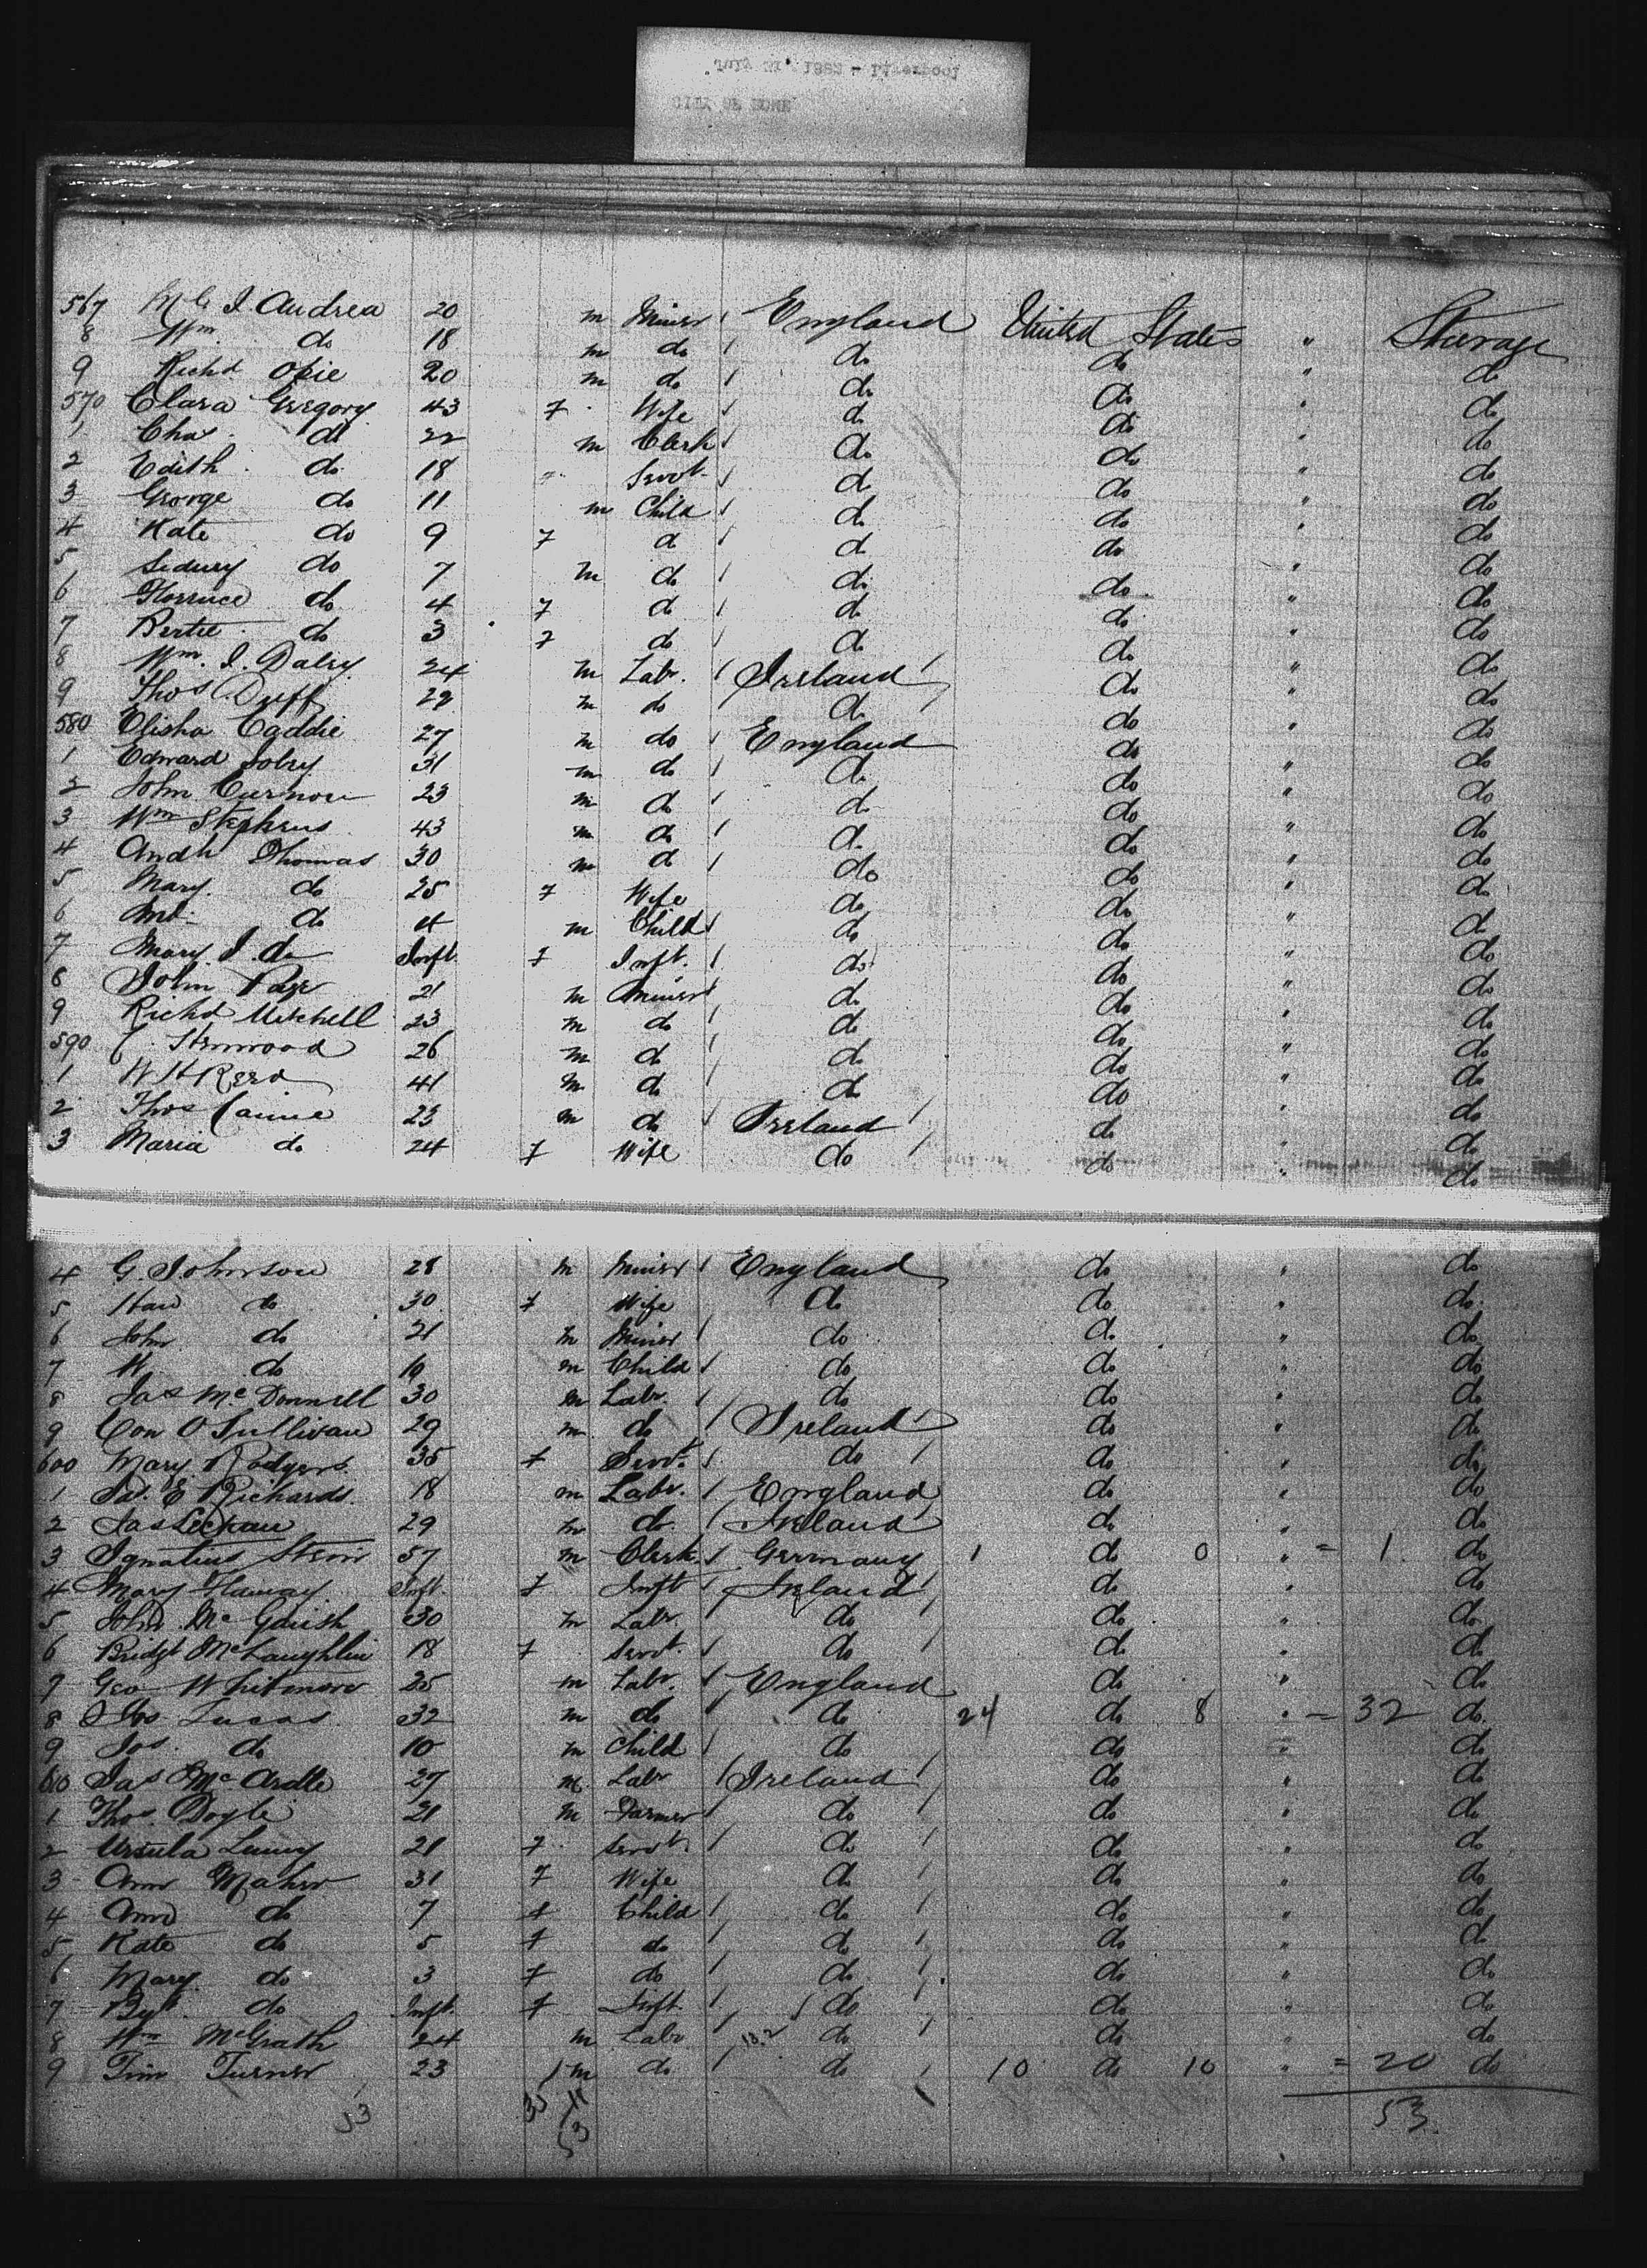 July 21' 1882 - Liverpool
CITY OF ROME
567 20 m Miner England United States " Steerage
8 Wm. do 18 m do do do " do
9 Richd Opie 20 m do do do " do
570 Clara Gregory 43 F Wife do do " do
1 Chas. do 22 m Clerk do do " do
2 Edith do 18 " Servt. do do " do
3 George do 11 m Child do do " do
4 Kate do 9 F do do do " do
5 Sidney do 7 m do do do " do
6 Florence do 4 F do do do " do
7 Bertie do 3 F do do do " do
8 Wm. J. Daley 24 m Labr. Ireland do " do
9 Thos Duff m do do do " do
580 Elisha Caddie 27 m do England do " do
1 Edward 31 m do do do " do
2 John Curnow 23 m do do do " do
3 Wm Stephens 43 m do do do " do
4 Thomas 30 m do do do " do
5 Mary do 25 F Wife do do " do
6 do 4 m Child do do " do
7 Mary J. do Inft. F Inft. do do " do
8 John Page 21 m Miner do do " do
9 Richd Mitchell 23 m do do do " do
590 26 m do do do " do
1 W H Reed 41 m do do do " do
2 Thos Caine 23 m do Ireland do " do
3 Maria do 24 F Wife do do " do
4 G. Johnson 28 m Miner England do " do
5 do 30 F Wife do do " do
6 John do 21 m Miner do do " do
7 W. do 10 m Child do do " do
8 Jas McDonnell 30 m Labr. do do " do
9 Con O Sullivan 29 m do Ireland do " do
600 Mary Rodgers 35 F Servt. do do " do
1 E Richards 18 m Labr. England do " do
2 Jas 29 m do Ireland do " do
3 Ignatius Stein 57 m Clerk Germany 1 do 0 " = 1 do
4 Mary Inft. F Inft Ireland do " do
5 John 30 m Labr do do " do
6 Bridgt McLaughlin 18 F Servt. do do " do
7 Geo Whitmore 25 m Labr. England do " do
8 Lucas 32 m do do 24 do 8 " = 32 do
9 Jos. do 10 m Child do do " do
610 Jas McArdle 27 m Labr Ireland do " do
1 Thos. Doyle 21 m Farmer do do " do
2 Ursula 21 F Servt. do do " do
3 Ann Maher 31 F Wife do do " do
4 Ann do 7 F Child do do " do
5 Kate do 5 F do do do " do
6 Mary do 3 F do do do " do
7 do Inft. F Inft. do do " do
8 Wm McGrath 24 m Labr do do " do
9 Tim Turner 23 m do do 10 do 10 " = 20 do
53 53 53